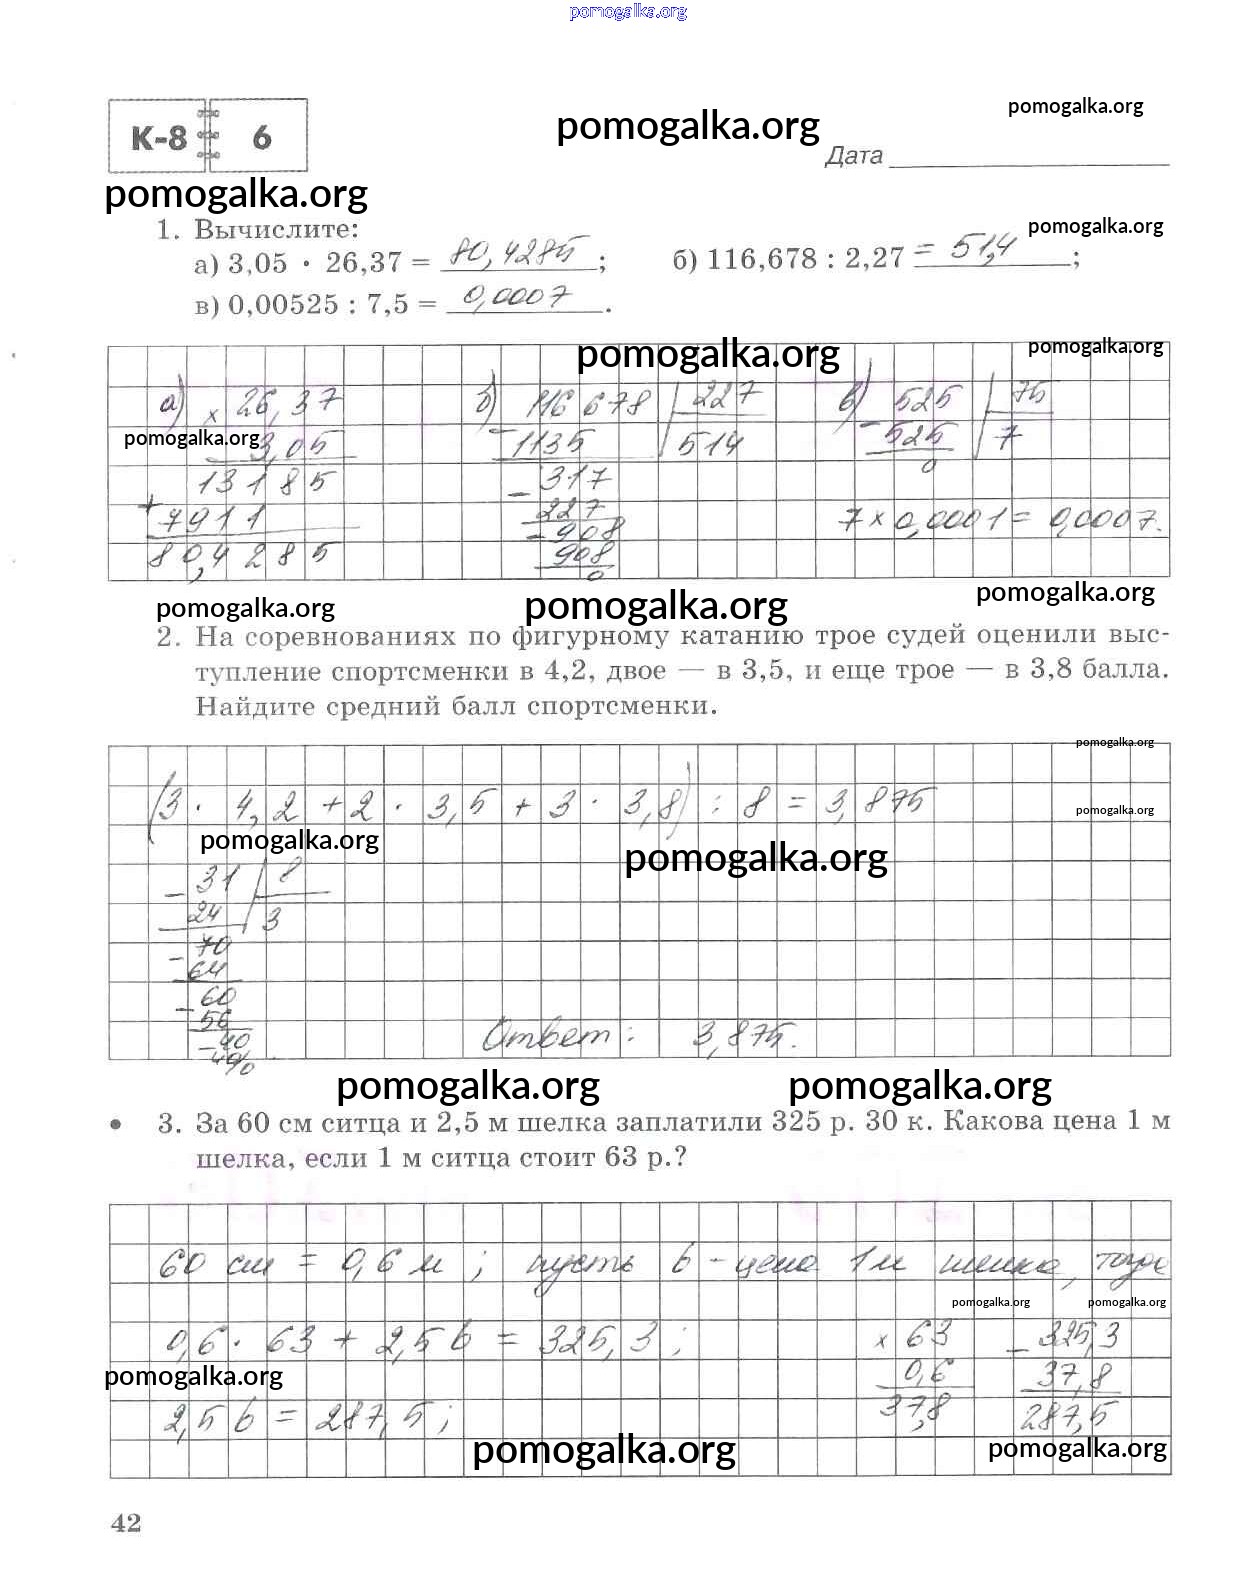 pomogalka.org
К-8 6
pomogalka.org
pomogalka.org
Дата
pomogalka.org
1. Вычислите:
pomogalka.org
а) 3,05 · 26,37 = 80,4285 ; б) 116,678 : 2,27 = 51,4 ;
в) 0,00525 : 7,5 = 0,0007 .
pomogalka.org
pomogalka.org
а) × 26,37 б) 116 678 | 227 в) 525 | 75
pomogalka.org
3,05 – 1135 514 – 525 7
13185 – 317 0
+ 7911 227 7 × 0,0001 = 0,0007.
– 908
80,4285 908
0
pomogalka.org
pomogalka.org
pomogalka.org
2. На соревнованиях по фигурному катанию трое судей оценили выс-
тупление спортсменки в 4,2, двое — в 3,5, и еще трое — в 3,8 балла.
Найдите средний балл спортсменки.
pomogalka.org
(3 · 4,2 + 2 · 3,5 + 3 · 3,8) : 8 = 3,875
pomogalka.org
pomogalka.org
pomogalka.org
– 31 | 8
24 3
– 70
64
– 60
56
– 40
40
0
Ответ: 3,875.
pomogalka.org
pomogalka.org
• 3. За 60 см ситца и 2,5 м шелка заплатили 325 р. 30 к. Какова цена 1 м
шелка, если 1 м ситца стоит 63 р.?
60 см = 0,6 м ; пусть b – цена 1 м шелка, тогда
pomogalka.org
pomogalka.org
0,6 · 63 + 2,5 b = 325,3 ; × 63 – 325,3
pomogalka.org
0,6 37,8
2,5 b = 287,5 ; 37,8 287,5
pomogalka.org
pomogalka.org
42